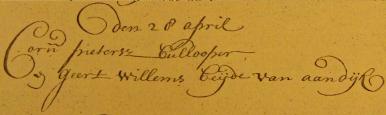 den 28 april
Corn pietersz bullooper
Geert willems beijde van aandijk